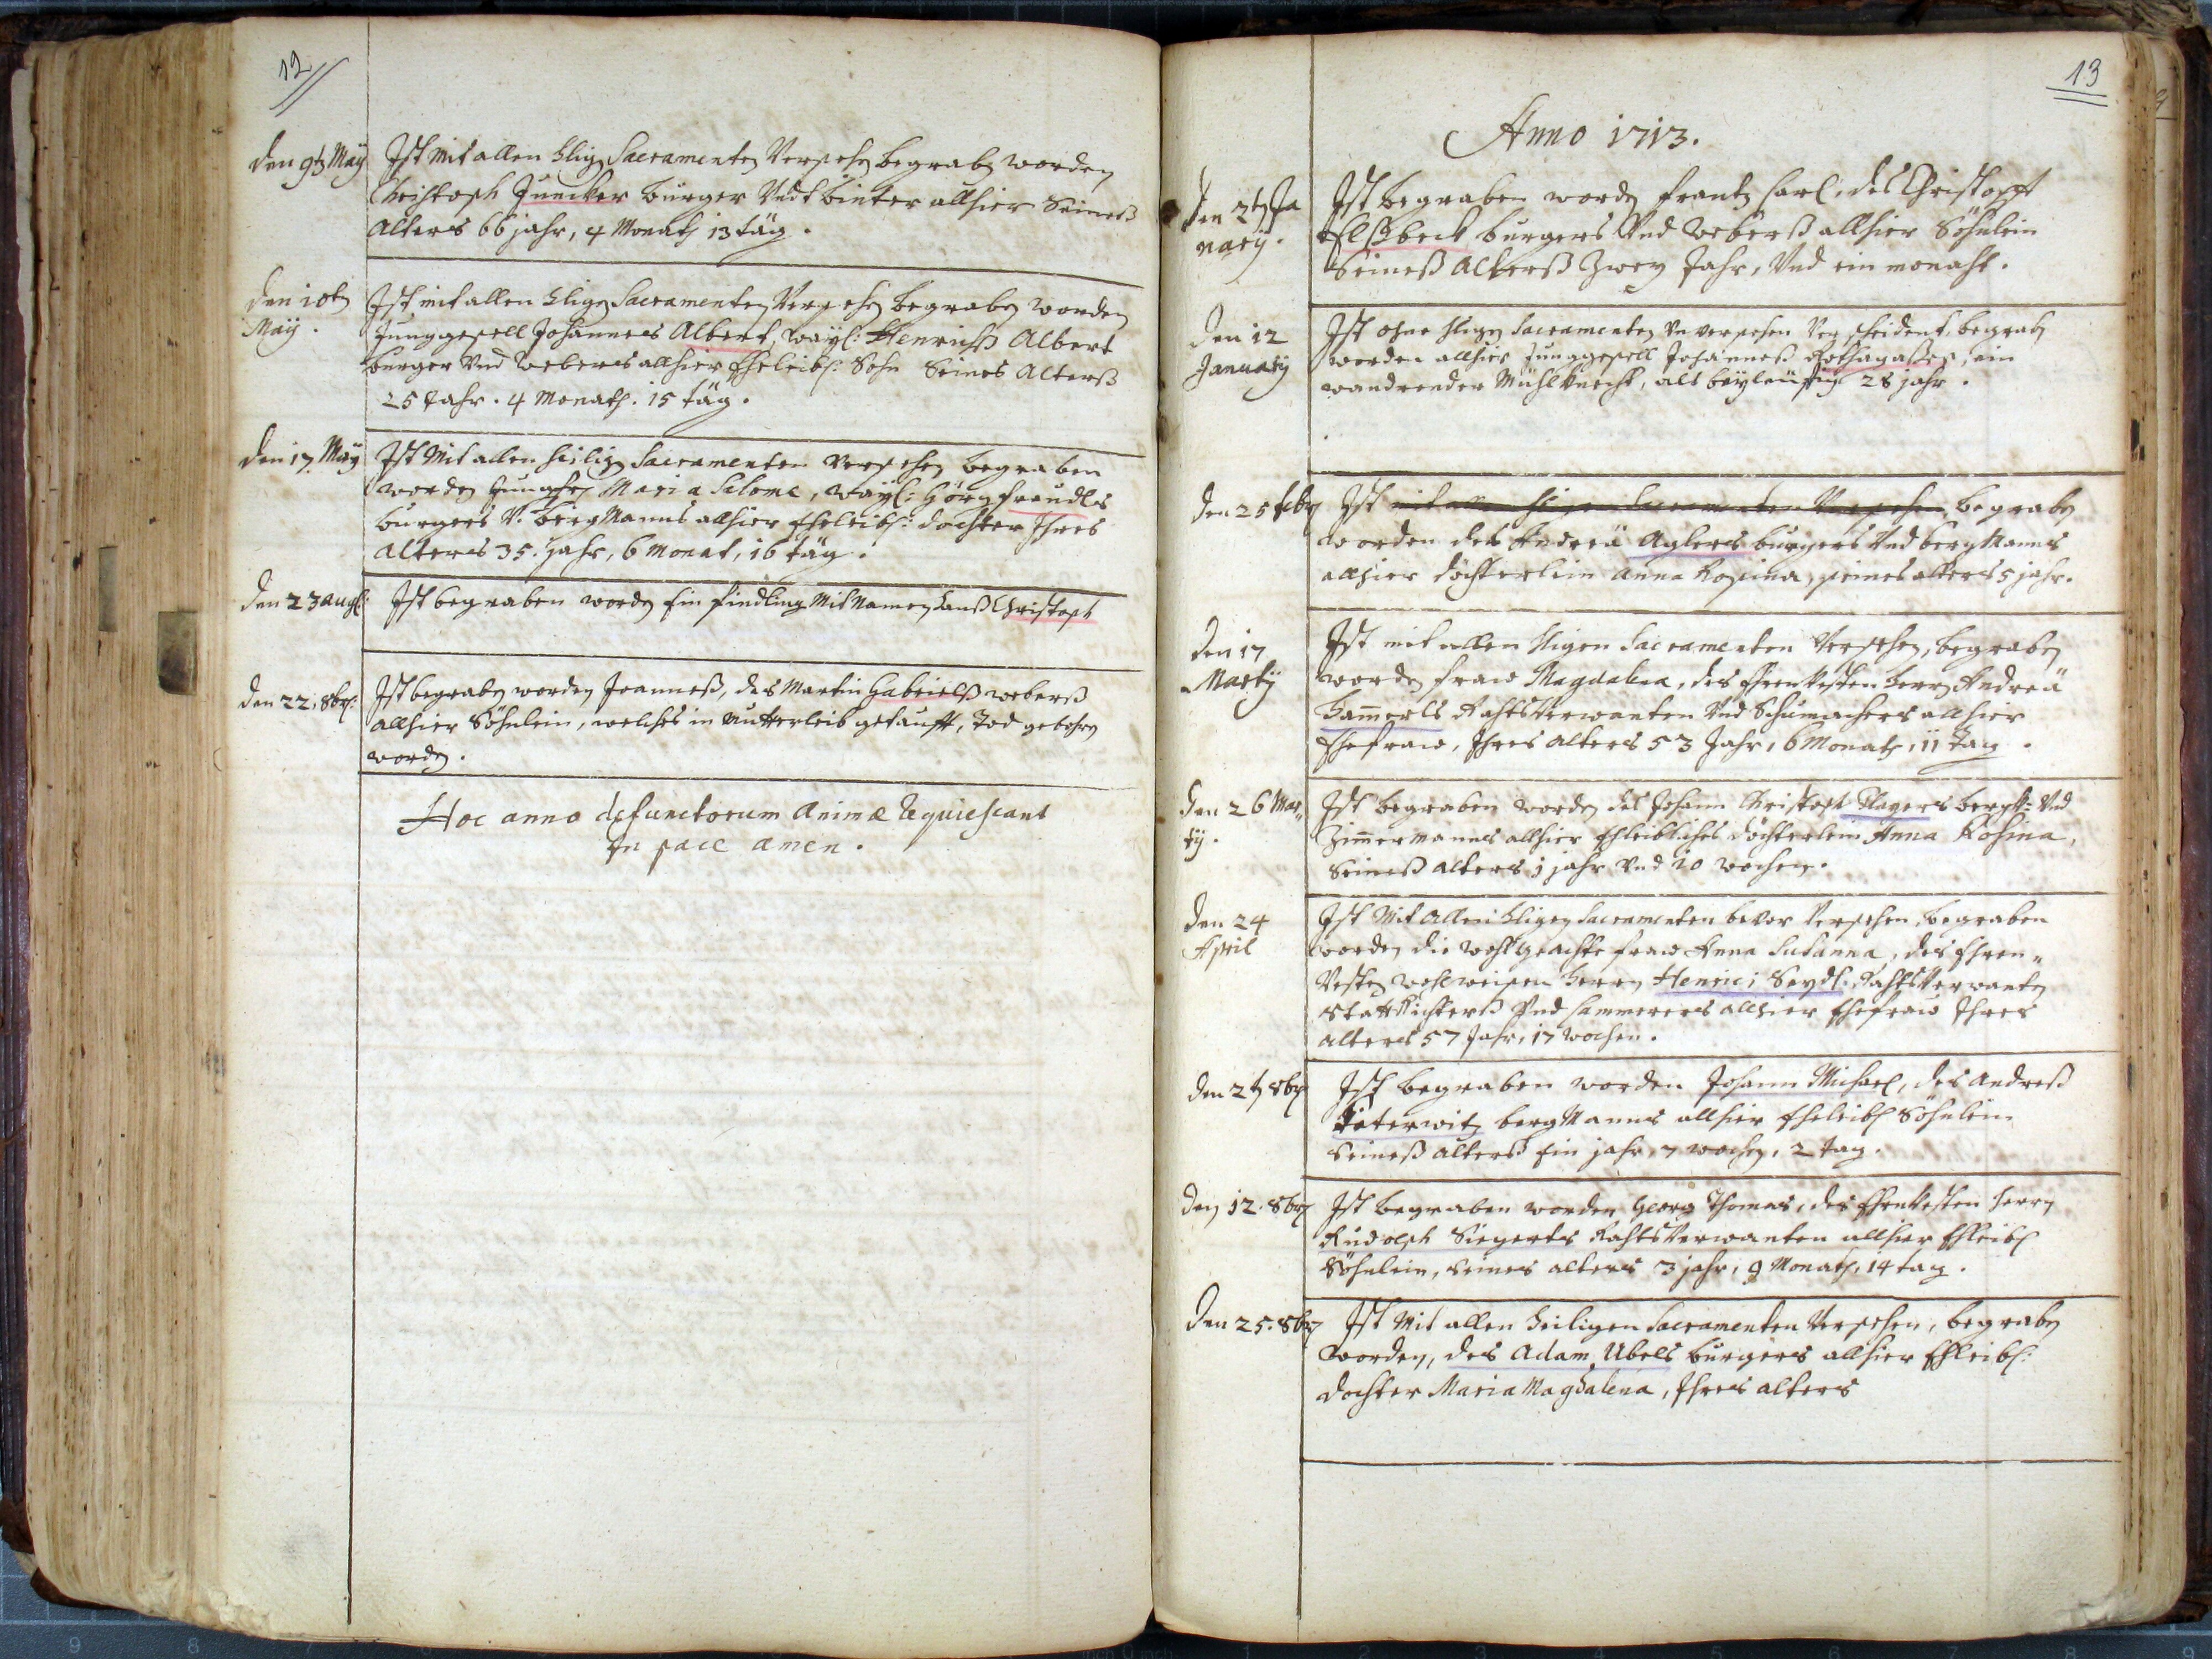 12
den 9t May Ist mit allen hlig Sacramenten Versehen begraben worden
Christoph Juncker burger Undt binter allhier Seineß
Alters 66 jahr, 4 Monath 13 täg.
den 10t May. Ist mit allen hligen Sacramenten Versehen begraben worden
Junggesell Johannes Albert, wayl: Henrichß Albert
burger Und Webers allhier Eheleibl: Sohn Seines Alterß
25 Jahr. 4 Monath. 15 täg.
den 17. May Ist Mit allen heilig Sacramenten Versehen begraben
worden Jungfr Maria Salome, wayl: Görg fraudls
burgers V. bergManns allhier Eheleibl: dochter Ihres
Alters 35. jahr, 6 Monat, 16 täg.
den 23 augl: Ist begraben worden Ein findling Mit Namen hanß Christoph
den 22. 8br: Ist begraben worden Joanneß, des Martin Gabrielß weberß
allhier Söhnlein, welches in Mutterleib getaufft, Tod gebohren
worden.
Hoc anno defunctorum Animæ Requiescant
In pace amen.
13
Anno 1713.
den 2t Ja
nary. Ist begraben worden frantz Carl, des Christoph
Elßbeck burgers Und Weberß allhier Söhnlein
Seineß Alterß Zwey Jahr, Und ein monaht.
den 12
January Ist ohne hligen Sacramenten unversehen Verscheident, begraben
worden allhier Junggesell Johanneß, ein
wandrender Mühlknecht, alt beyleüfig 28 jahr.
den 25 febr Ist mit allen hligen Sacramenten Versehen begraben
worden des Andreä Aglers burgers Und bergManns
allhier döchterlein Anna Rosina, seines alters 5 jahr.
den 17
Marty Ist mit allen hligen Sacramenten Versehen, begraben
worden fraw Magdalena, des Ehrnvesten herrn Andreä
Hammerls RahtsVerwanten Und Schumachers allhier
Ehefraw, Ihres alters 53 Jahr, 6 Monath, 11 Tag.
den 26 Mar„
ty. Ist begraben worden des Johann Christoph Mayers bergk: Und
Zimmermanns allhier Ehleibliches döchterlein Anna Rosina,
Seineß alters 1 jahr Und 10 wochen.
den 24
April Ist Mit Allen hligen Sacramenten bevor Versehen, begraben
worden die wohlgeachte fraw Anna Susanna, des Ehren„
Vesten wohlweisen herrn Henrici Seydl: RahtsVerwanten
StattRichterß Und Cammerers allhier Ehefraw Ihres
alters 57 Jahr, 17 wochen.
den 2t 8br Ist begraben worden Johann Michael, des Andreß
bergManns allhier Eheleibl Söhnlein
Seineß Alterß Ein jahr, 7 wochen, 2 tag.
den 12. 8br Ist begraben worden Georg Thomas, des Ehrnvesten herrn
Rudolph Siegerts RahtsVerwanten allhier Ehleibl
Söhnlein, seines alters 3 jahr, 9 Monath, 14 tag.
den 25. 8br Ist Mit allen heiligen Sacramenten Versehen, begraben
worden, des Adam Übels burgers allhier Ehleibl:
dochter Maria Magdalena, Ihres alters